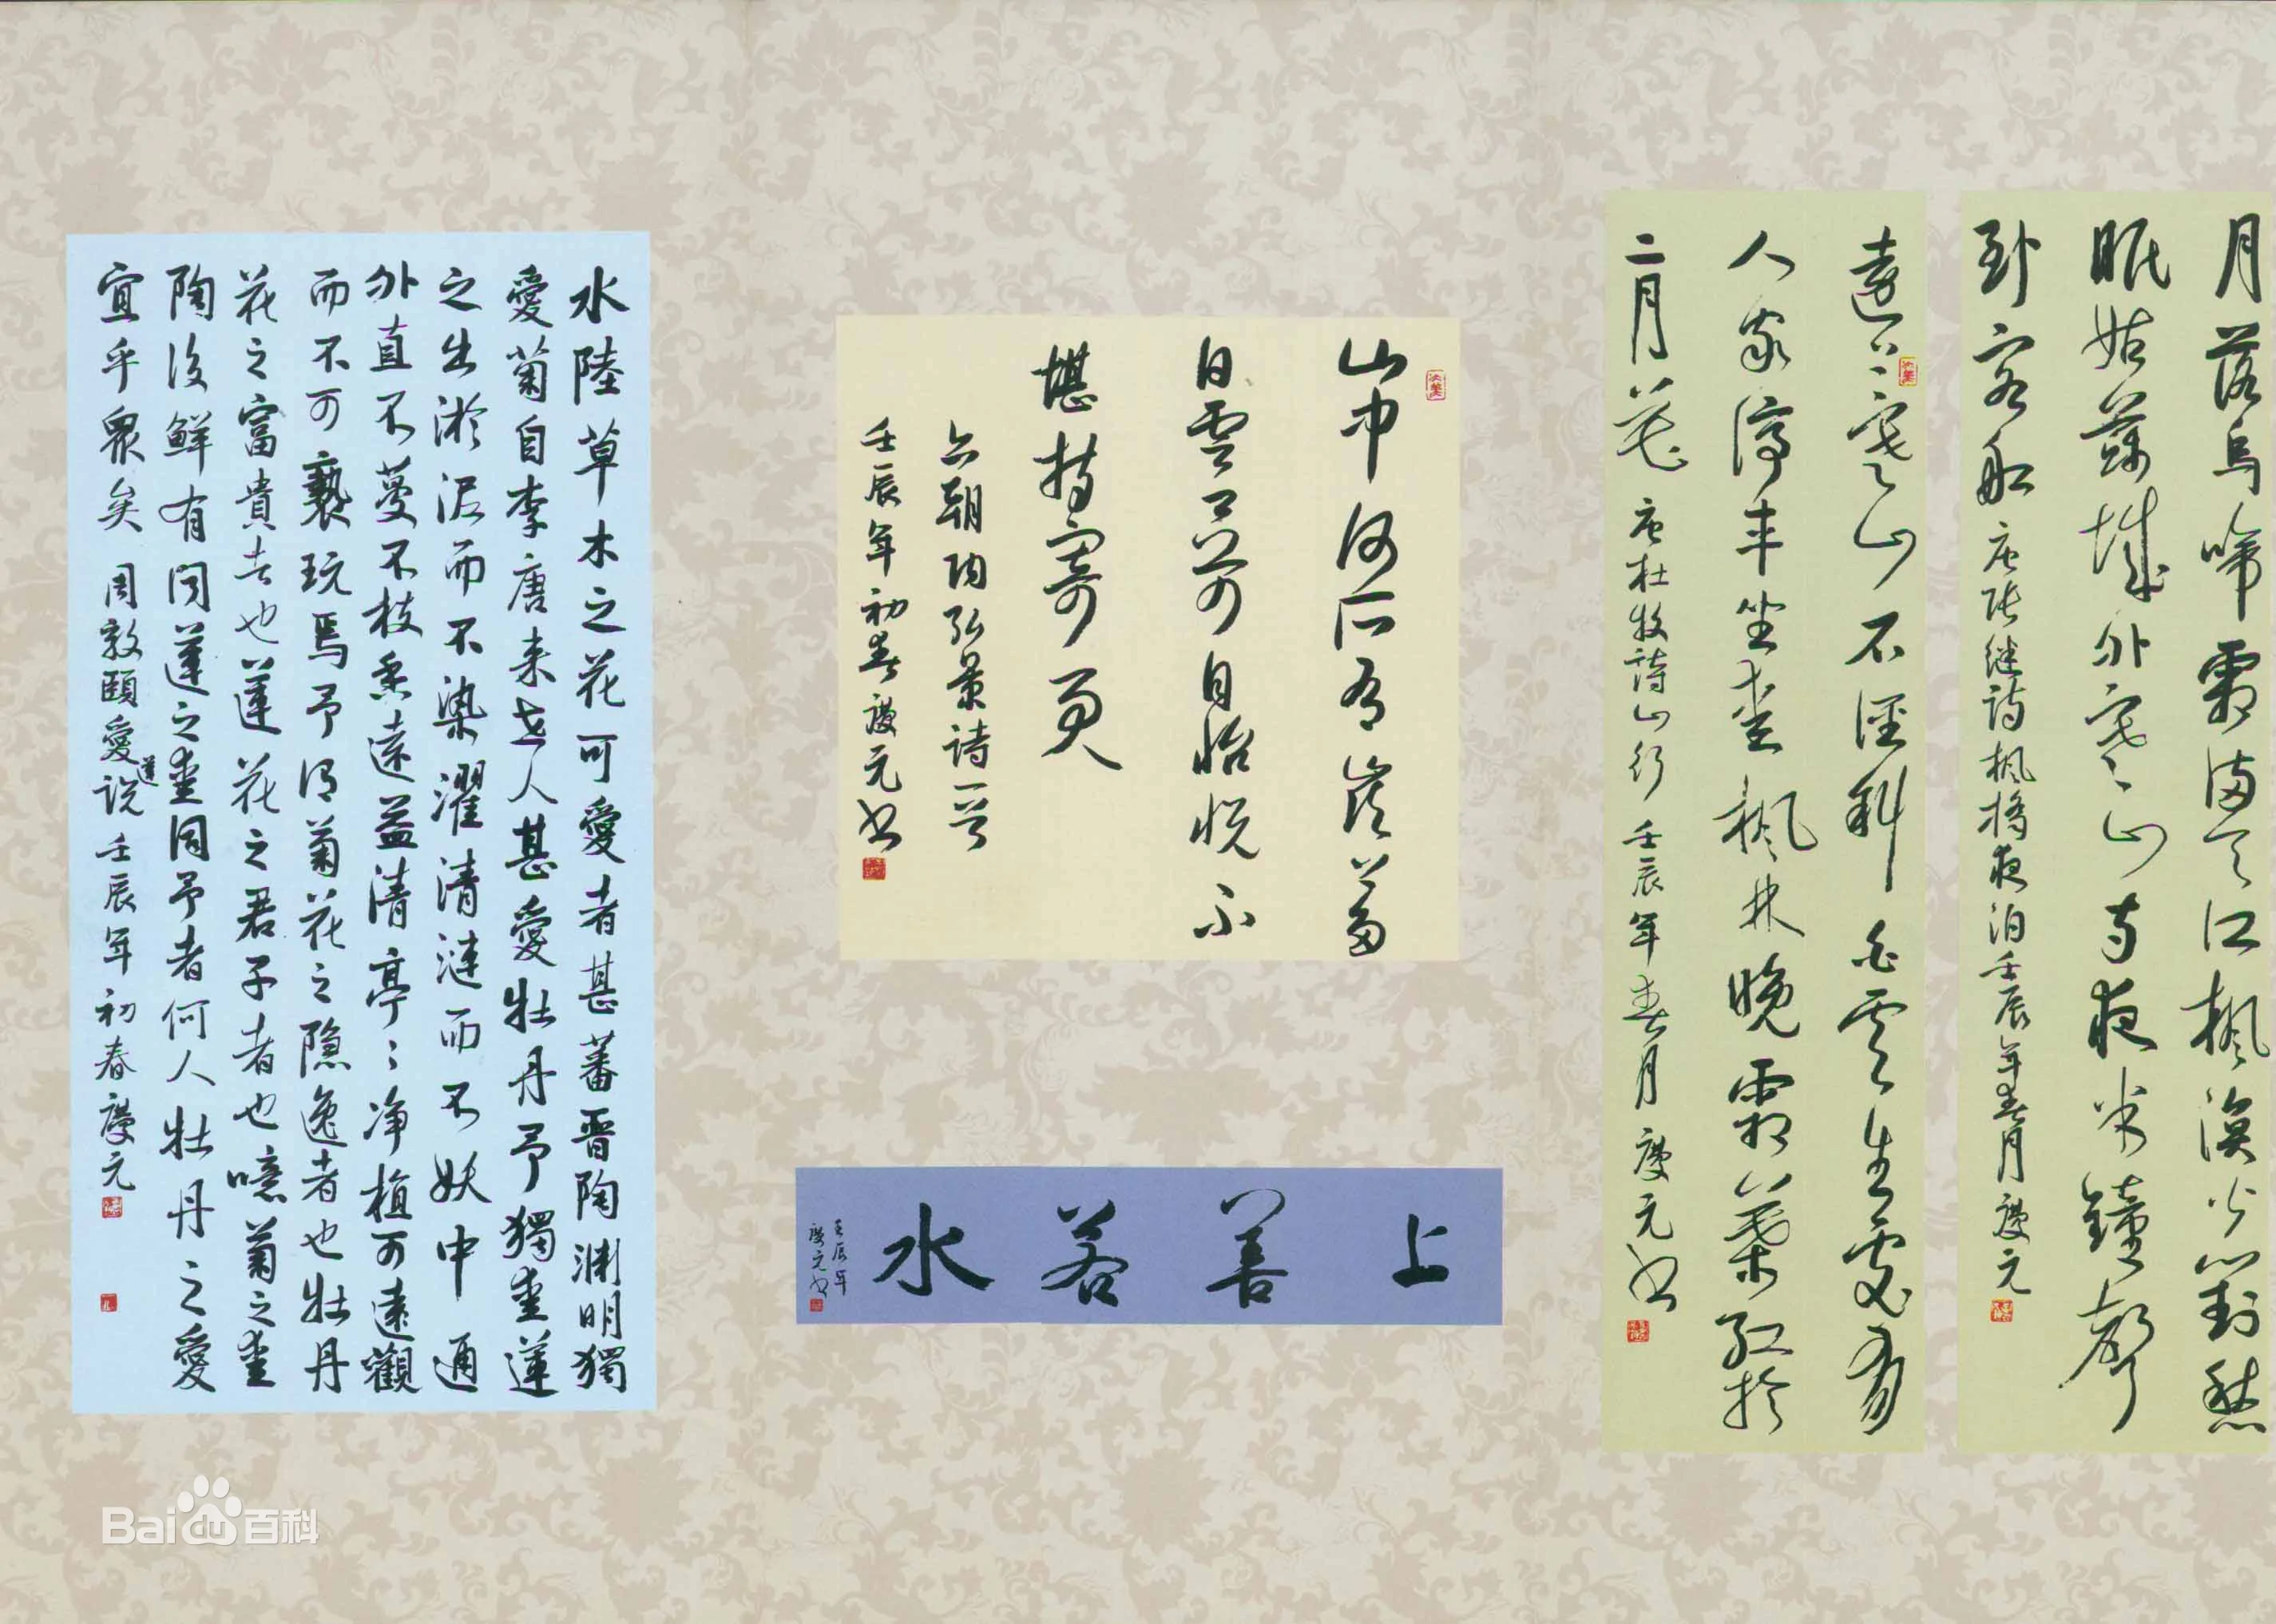 月落烏啼霜满天江楓漁火對愁
眠姑蘇城外寒山寺夜半鐘聲
到客船 唐张继詩楓橋夜泊壬辰年春月慶元
遠上寒山石徑斜白雲生處有
人家停車坐愛楓林晚霜葉紅於
二月花 唐杜牧詩山行 壬辰年春月慶元书
山中何所有嶺上多
白雲只可自怡悦不
堪持寄君
六朝陶弘景詩一首
壬辰年初春慶元书
上善若水
壬辰年
慶元书
水陸草木之花可愛者甚蕃晋陶渊明獨
愛菊自李唐来世人甚愛牡丹予獨愛蓮
之出淤泥而不染濯清涟而不妖中通
外直不蔓不枝香遠益清亭〻净植可遠觀
而不可褻玩焉予谓菊花之隐逸者也牡丹
花之富貴者也蓮花之君子者也噫菊之愛
陶後鮮有闻蓮之愛同予者何人牡丹之愛
宜乎衆矣 周敦頤愛蓮说 壬辰年初春慶元
Bai du 百科